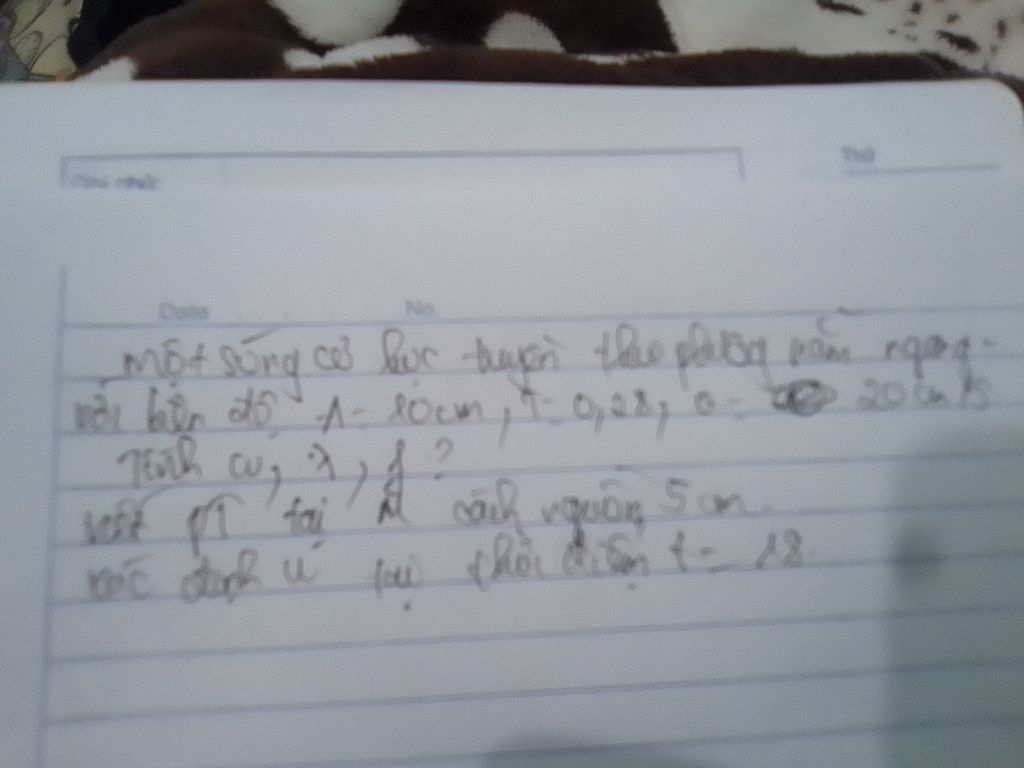 Thứ
Date No.
một sóng cơ học truyền theo phương nằm ngang
với biên độ A = 10cm, T = 0,2s, 20cm/s
Tính ω, λ, f ?
viết PT tại M cách nguồn 5cm.
xác định u tại thời điểm t = 1s.